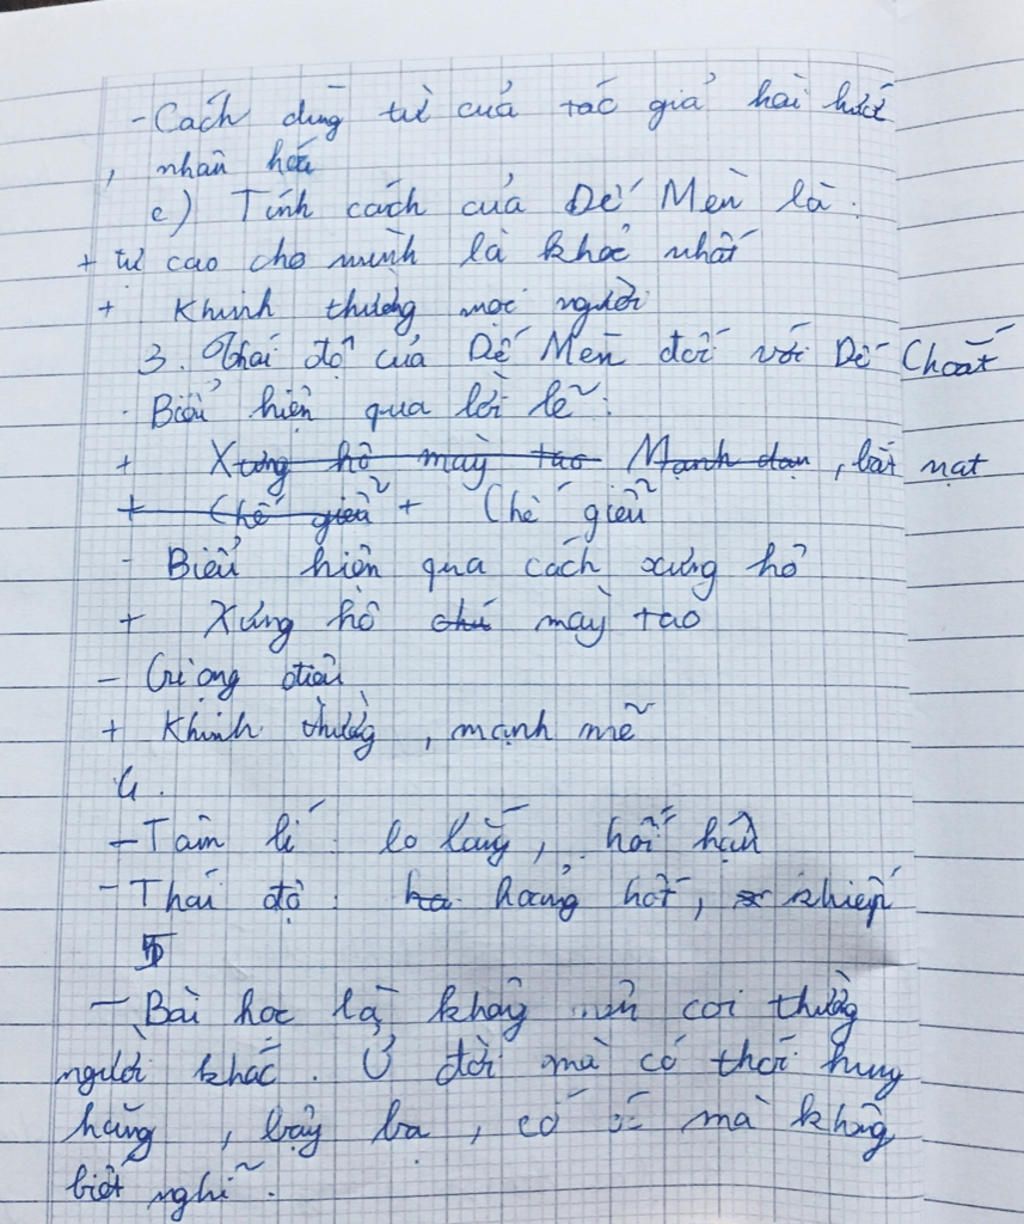 - Cách dùng từ của tác giả hài hước
, nhân hoá
c) Tính cách của Dế Mèn là :
+ tự cao cho mình là khoẻ nhất
+ Khinh thường mọi người
3. Thái độ của Dế Mèn đối với Dế Choắt
- Biểu hiện qua lời lẽ :
+ Xưng hô mày tao Mạnh dạn, bắt nạt
+ Chế giễu + Chế giễu
- Biểu hiện qua cách xưng hô
+ Xưng hô chú mày tao
- Giọng điệu
+ Khinh thường, mạnh mẽ
4.
- Tâm lí : lo lắng, hối hận
- Thái độ : hoảng hốt, khiếp
5
- Bài học là không nên coi thường
người khác. Ở đời mà có thói hung
hăng, bậy bạ, có óc mà không
biết nghĩ.